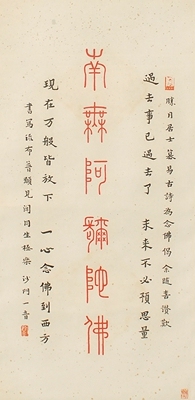 勝月居士纂易古詩為念佛偈余隨喜讚歎
過去事已過去了 未來不必預思量
南無阿彌陀佛
現在万般皆放下 一心念佛到西方
書篤流布普願見聞同生極樂 沙門一音